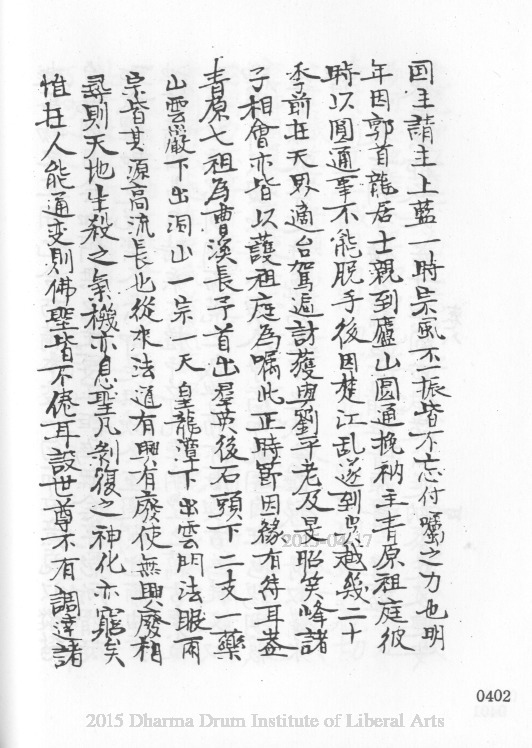 国主請主上藍一時宗風丕振皆不忘付囑之力也明
年因郭首龍居士親到廬山圓通挽衲主青原祖庭彼
時以圓通事不能脫手後因楚江乱遂到吳越幾二十
季前在天界適台駕遍訪獲與劉平老及晏昭笑峰諸
子相會亦皆以護祖庭為囑此正時節因緣有待耳蓋
青原七祖為曹溪長子首出羣英後石頭下二支一藥
山雲巖下出洞山一宗一天皇龍潭下出雲門法眼兩
宗皆其源高流長也從來法道有興有廢使無興廢相
尋則天地生殺之氣機亦息聖凡剝復之神化亦窮矣
惟在人能通变則佛聖皆不倦耳設世尊不有調達諸
0402
2015-04-17
2015 Dharma Drum Institute of Liberal Arts